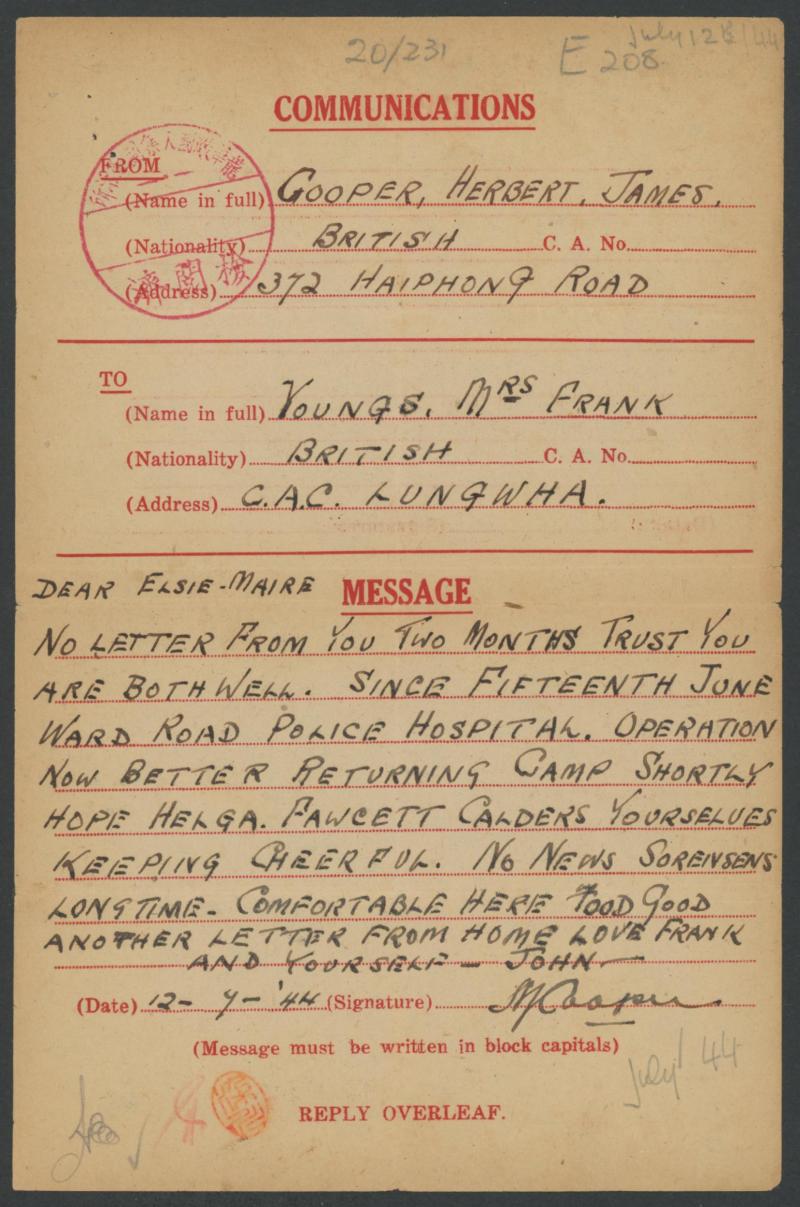 20/231
July 12th/44
E 208
COMMUNICATIONS
FROM
(Name in full) COOPER, HERBERT, JAMES.
(Nationality) BRITISH C. A. No.
(Address) 372 HAIPHONG ROAD
檢閱濟
TO
(Name in full) YOUNGS, MRS FRANK
(Nationality) BRITISH C. A. No.
(Address) C.A.C. LUNGWHA.
DEAR ELSIE-MAIRE
MESSAGE
NO LETTER FROM YOU TWO MONTHS TRUST YOU
ARE BOTH WELL. SINCE FIFTEENTH JUNE
WARD ROAD POLICE HOSPITAL. OPERATION
NOW BETTER RETURNING CAMP SHORTLY
HOPE HELGA. FAWCETT CALDERS YOURSELVES
KEEPING CHEERFUL. NO NEWS SORENSENS
LONG TIME- COMFORTABLE HERE FOOD GOOD
ANOTHER LETTER FROM HOME LOVE FRANK
AND YOURSELF - JOHN
(Date) 12- 7- '44 (Signature) HJCooper
(Message must be written in block capitals)
July/44
REPLY OVERLEAF.